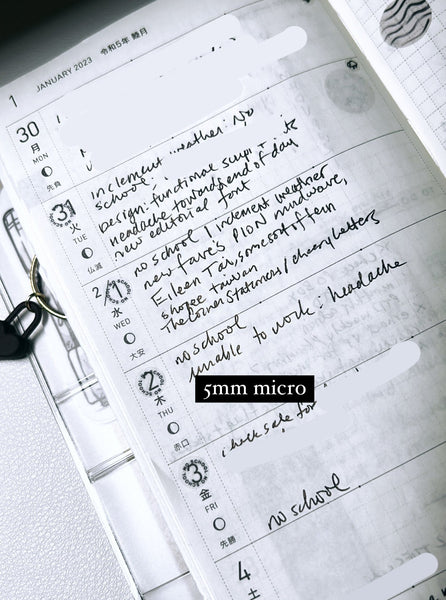 1 JANUARY 2023 令和5年 睦月
30
月
MON
先負
31
火
TUE
仏滅
inclement weather: No
school
Design: functional
headache toward end of day
new editorial font
2
1
水
WED
大安
no school / inclement weather
new fave's PION midwave,
Eileen Tai, some sort of fern
shopee taiwan
The Corner Stationers / cheery letters
2
木
THU
赤口
no school
unable to work: headache
5mm micro
3
金
FRI
先勝
check sale for
no school
4
土